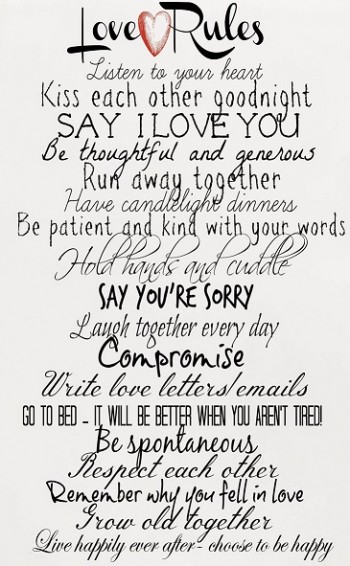 Love Rules
Listen to your heart
Kiss each other goodnight
SAY I LOVE YOU
Be thoughtful and generous
Run away together
Have candlelight dinners
Be patient and kind with your words
Hold hands and cuddle
SAY YOU'RE SORRY
Laugh together every day
Compromise
Write love letters/emails
GO TO BED - IT WILL BE BETTER WHEN YOU AREN'T TIRED!
Be spontaneous
Respect each other
Remember why you fell in love
Grow old together
Live happily ever after - choose to be happy